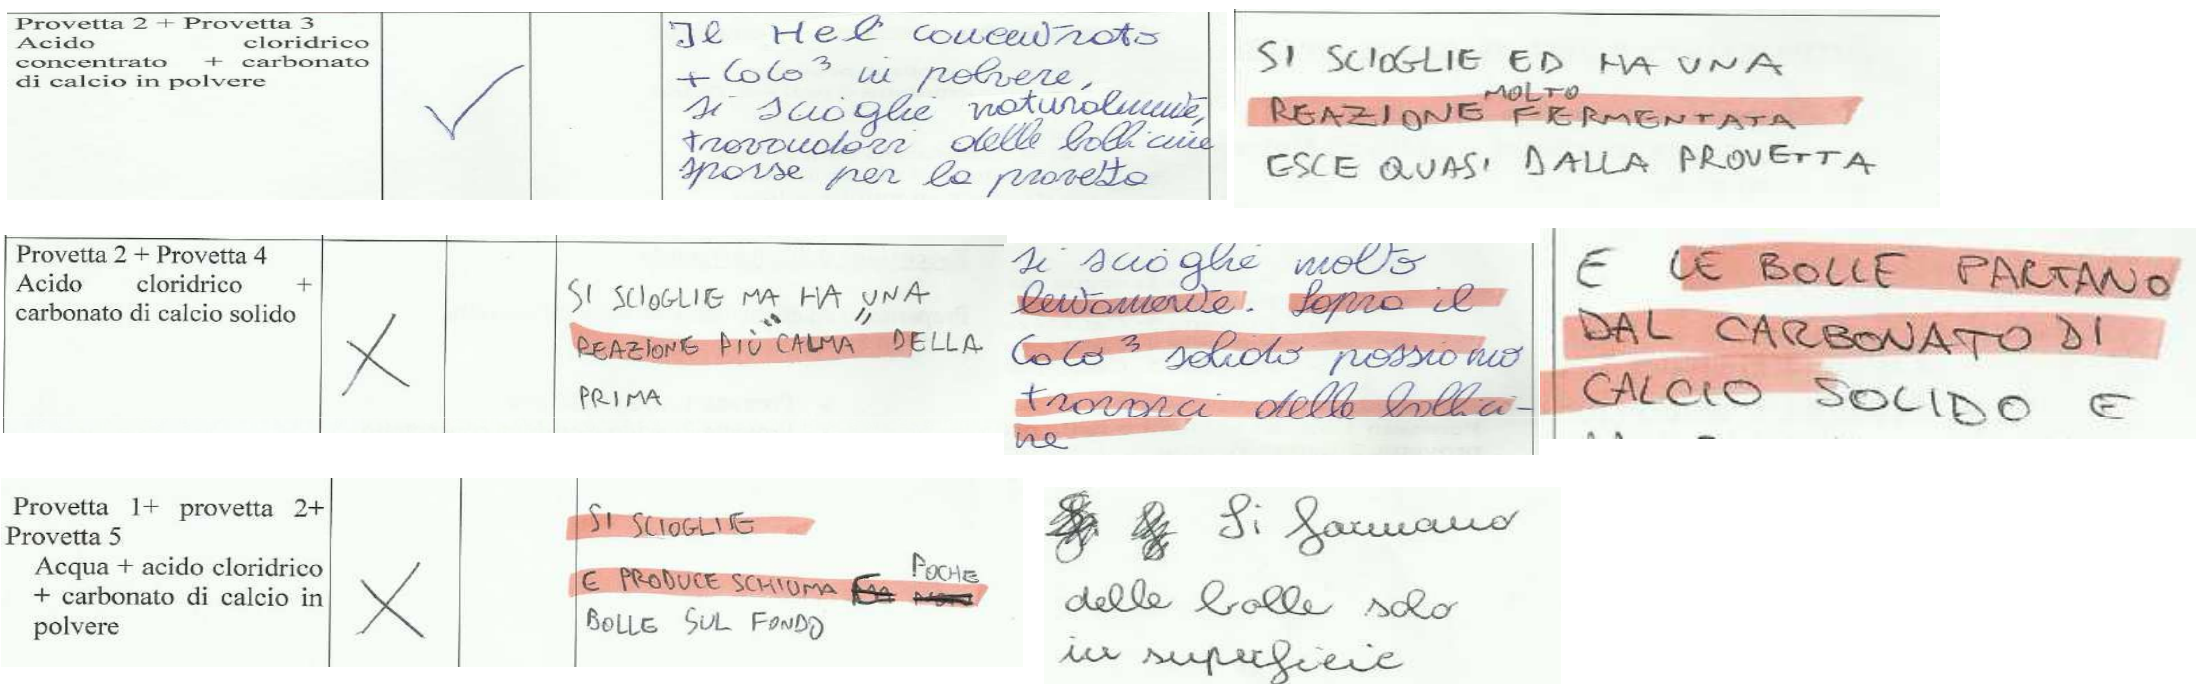 Provetta 2 + Provetta 3
Acido cloridrico
concentrato + carbonato
di calcio in polvere
Il Hcl concentrato
+ CoCo³ in polvere,
si scioglie naturalmente,
trovandoci delle bollicine
sparse per la provetta
SI SCIOGLIE ED HA UNA
REAZIONE MOLTO FERMENTATA
ESCE QUASI DALLA PROVETTA
Provetta 2 + Provetta 4
Acido cloridrico +
carbonato di calcio solido
SI SCIOGLIE MA HA UNA
REAZIONE "PIÙ CALMA" DELLA
PRIMA
si scioglie molto
lentamente. Sopra il
CoCo³ solido possiamo
trovarci delle bollici-
ne
E LE BOLLE PARTANO
DAL CARBONATO DI
CALCIO SOLIDO E
Provetta 1+ provetta 2+
Provetta 5
Acqua + acido cloridrico
+ carbonato di calcio in
polvere
SI SCIOGLIE
E PRODUCE SCHIUMA POCHE
BOLLE SUL FONDO
Si formano
delle bolle solo
in superficie